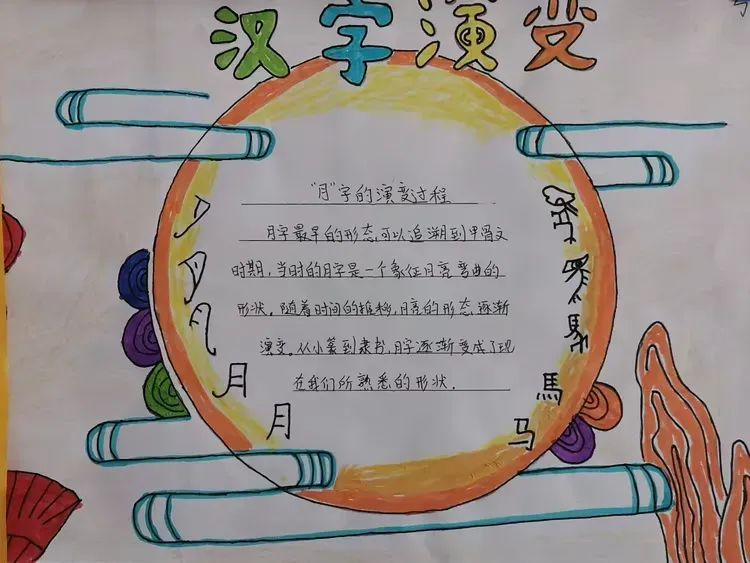 汉字演变
"月"字的演变过程
月字最早的形态,可以追溯到甲骨文
时期,当时的月字是一个象征月亮弯曲的
形状。随着时间的推移,月亮的形态逐渐
演变。从小篆到隶书,月字逐渐变成了现
在我们所熟悉的形状。
月
月
馬
马